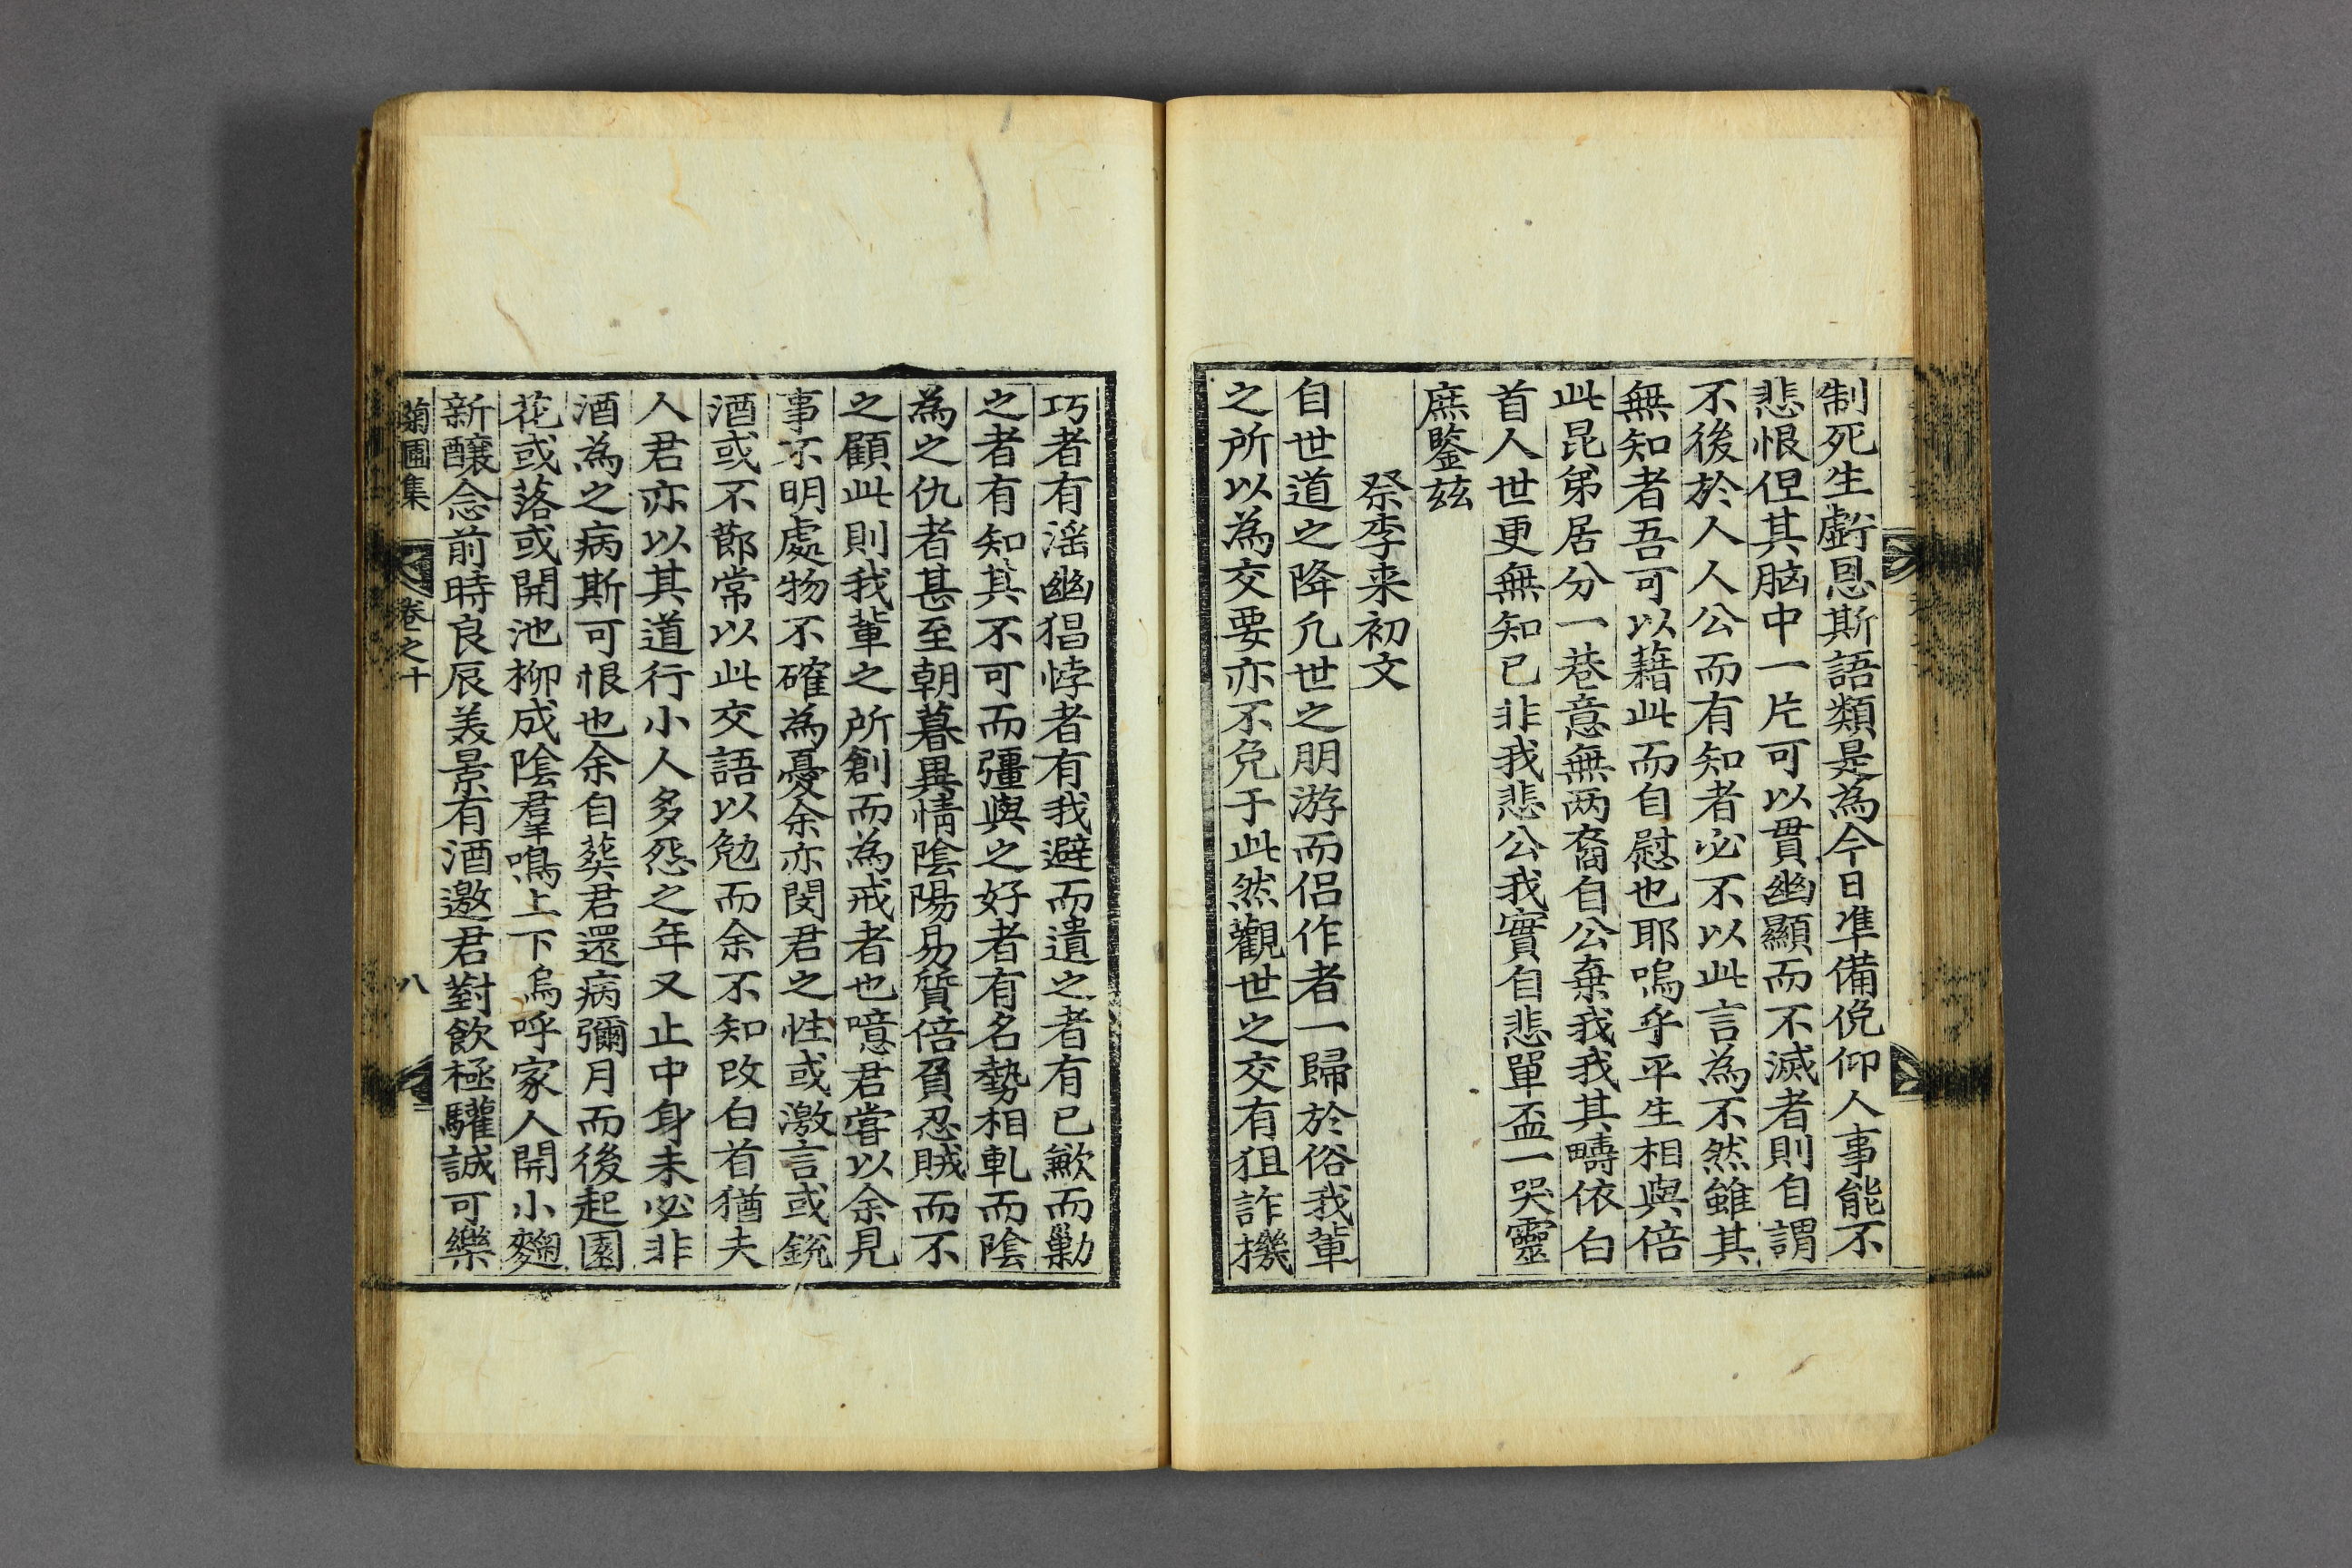 制死生虧恩斯語類是為今日準備俛仰人事能不
悲恨但其胸中一片可以貫幽顯而不滅者則自謂
不後於人人公而有知者必不以此言為不然雖其
無知者吾可以藉此而自慰也耶嗚乎平生相與倍
此昆弟居分一巷意無两裔自公棄我我其疇依白
首人世更無知已非我悲公我實自悲單盃一哭靈
庶鑒茲
祭李来初文
自世道之降凡世之朋游而侣作者一歸於俗我輩
之所以為交要亦不免于此然觀世之交有狙詐機
巧者有滛幽猖悖者有我避而遺之者有已歉而勦
之者有知其不可而彊與之好者有名勢相軋而陰
為之仇者甚至朝暮異情陰陽易質倍負忍賊而不
之顧此則我輩之所創而為戒者也噫君嘗以余見
事不明處物不確為憂余亦閔君之性或激言或銳
酒或不節常以此交語以勉而余不知改白首猶夫
人君亦以其道行小人多怨之年又止中身未必非
酒為之病斯可恨也余自葵君還病彌月而後起園
花或落或開池柳成陰羣鳴上下烏呼家人開小麴
新醸念前時良辰美景有酒邀君對飲極驩誠可樂
菊圃集 卷之十 八